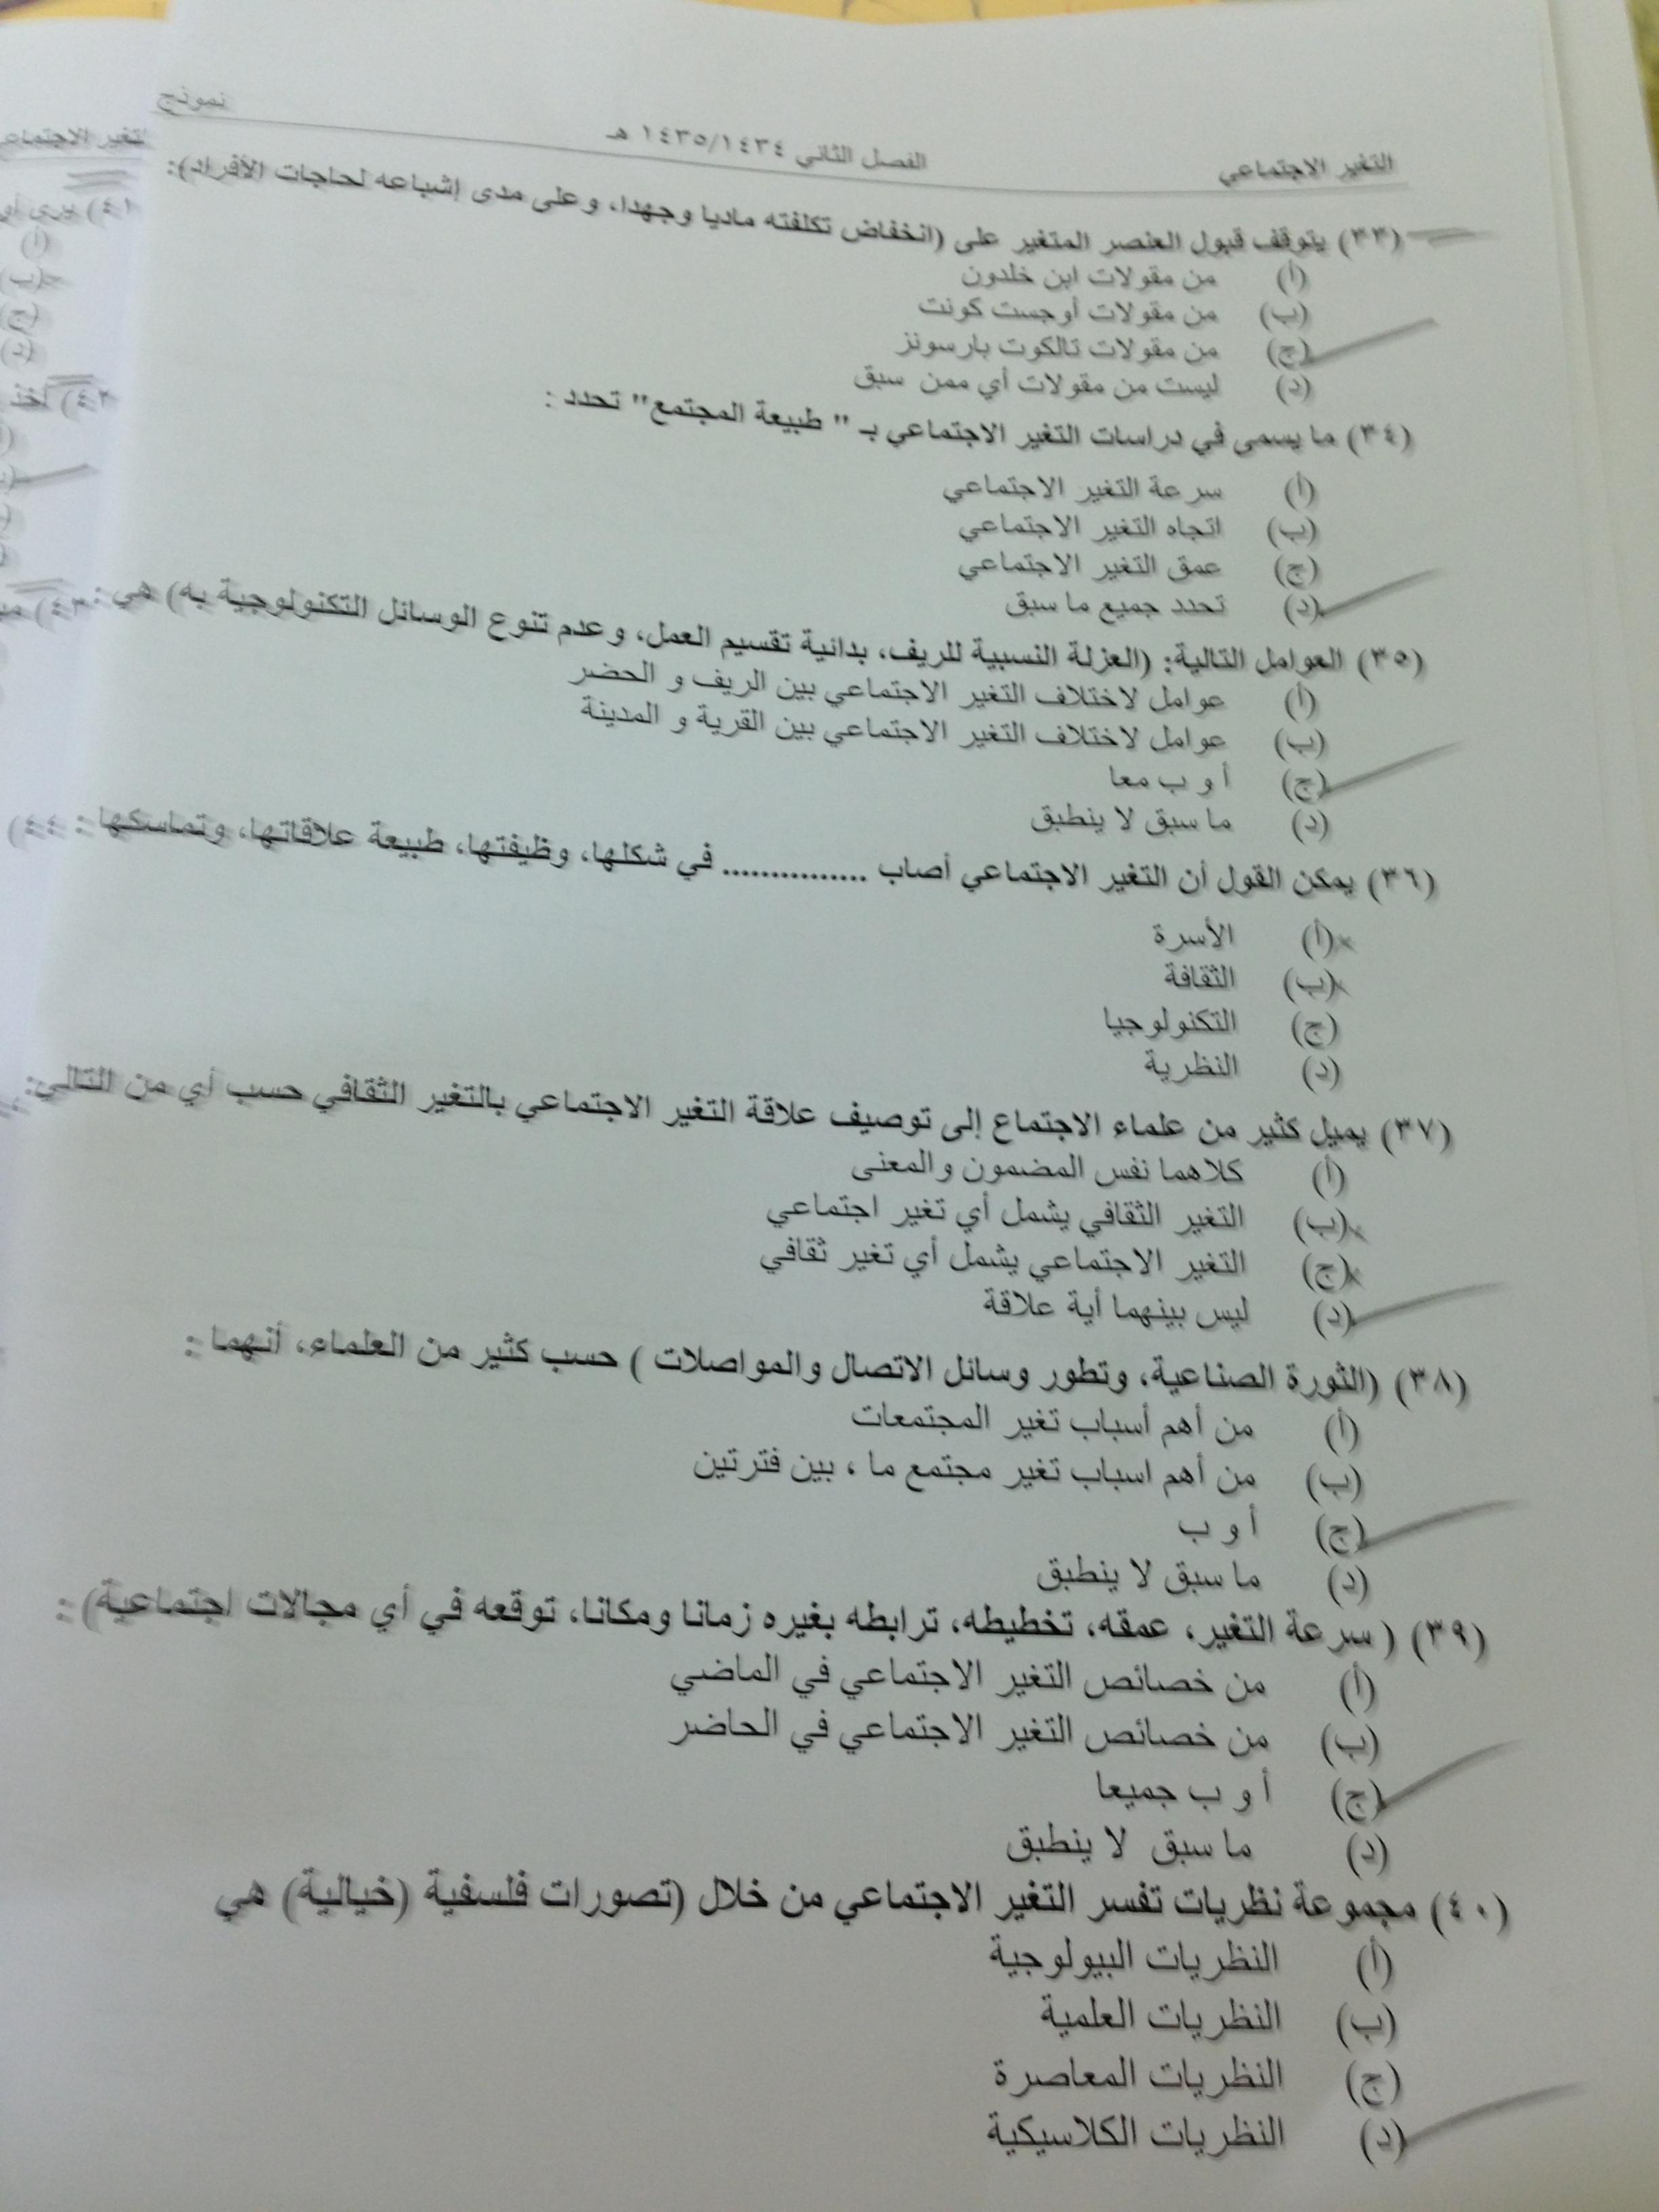 التغير الاجتماعي الفصل الثاني ١٤٣٥/١٤٣٤ هـ نموذج
(٣٣) يتوقف قبول العنصر المتغير على (انخفاض تكلفته ماديا وجهدا، وعلى مدى إشباعه لحاجات الأفراد):
(أ) من مقولات ابن خلدون
(ب) من مقولات أوجست كونت
(ج) من مقولات تالكوت بارسونز
(د) ليست من مقولات أي ممن سبق
(٣٤) ما يسمى في دراسات التغير الاجتماعي بـ " طبيعة المجتمع" تحدد :
(أ) سرعة التغير الاجتماعي
(ب) اتجاه التغير الاجتماعي
(ج) عمق التغير الاجتماعي
(د) تحدد جميع ما سبق
(٣٥) العوامل التالية: (العزلة النسبية للريف، بدائية تقسيم العمل، وعدم تنوع الوسائل التكنولوجية به) هي :
(أ) عوامل لاختلاف التغير الاجتماعي بين الريف و الحضر
(ب) عوامل لاختلاف التغير الاجتماعي بين القرية و المدينة
(ج) أ و ب معا
(د) ما سبق لا ينطبق
(٣٦) يمكن القول أن التغير الاجتماعي أصاب ............... في شكلها، وظيفتها، طبيعة علاقاتها، وتماسكها :
(أ) الأسرة
(ب) الثقافة
(ج) التكنولوجيا
(د) النظرية
(٣٧) يميل كثير من علماء الاجتماع إلى توصيف علاقة التغير الاجتماعي بالتغير الثقافي حسب أي من التالي:
(أ) كلاهما نفس المضمون والمعنى
(ب) التغير الثقافي يشمل أي تغير اجتماعي
(ج) التغير الاجتماعي يشمل أي تغير ثقافي
(د) ليس بينهما أية علاقة
(٣٨) (الثورة الصناعية، وتطور وسائل الاتصال والمواصلات ) حسب كثير من العلماء، أنهما :
(أ) من أهم أسباب تغير المجتمعات
(ب) من أهم اسباب تغير مجتمع ما ، بين فترتين
(ج) أ و ب
(د) ما سبق لا ينطبق
(٣٩) ( سرعة التغير، عمقه، تخطيطه، ترابطه بغيره زمانا ومكانا، توقعه في أي مجالات اجتماعية) :
(أ) من خصائص التغير الاجتماعي في الماضي
(ب) من خصائص التغير الاجتماعي في الحاضر
(ج) أ و ب جميعا
(د) ما سبق لا ينطبق
(٤٠) مجموعة نظريات تفسر التغير الاجتماعي من خلال (تصورات فلسفية (خيالية) هي
(أ) النظريات البيولوجية
(ب) النظريات العلمية
(ج) النظريات المعاصرة
(د) النظريات الكلاسيكية
التغير الاجتماعي
(٤١) يرى
(أ)
(ب)
(ج)
(د)
(٤٢) أخذ
(٤٣)
(٤٤)